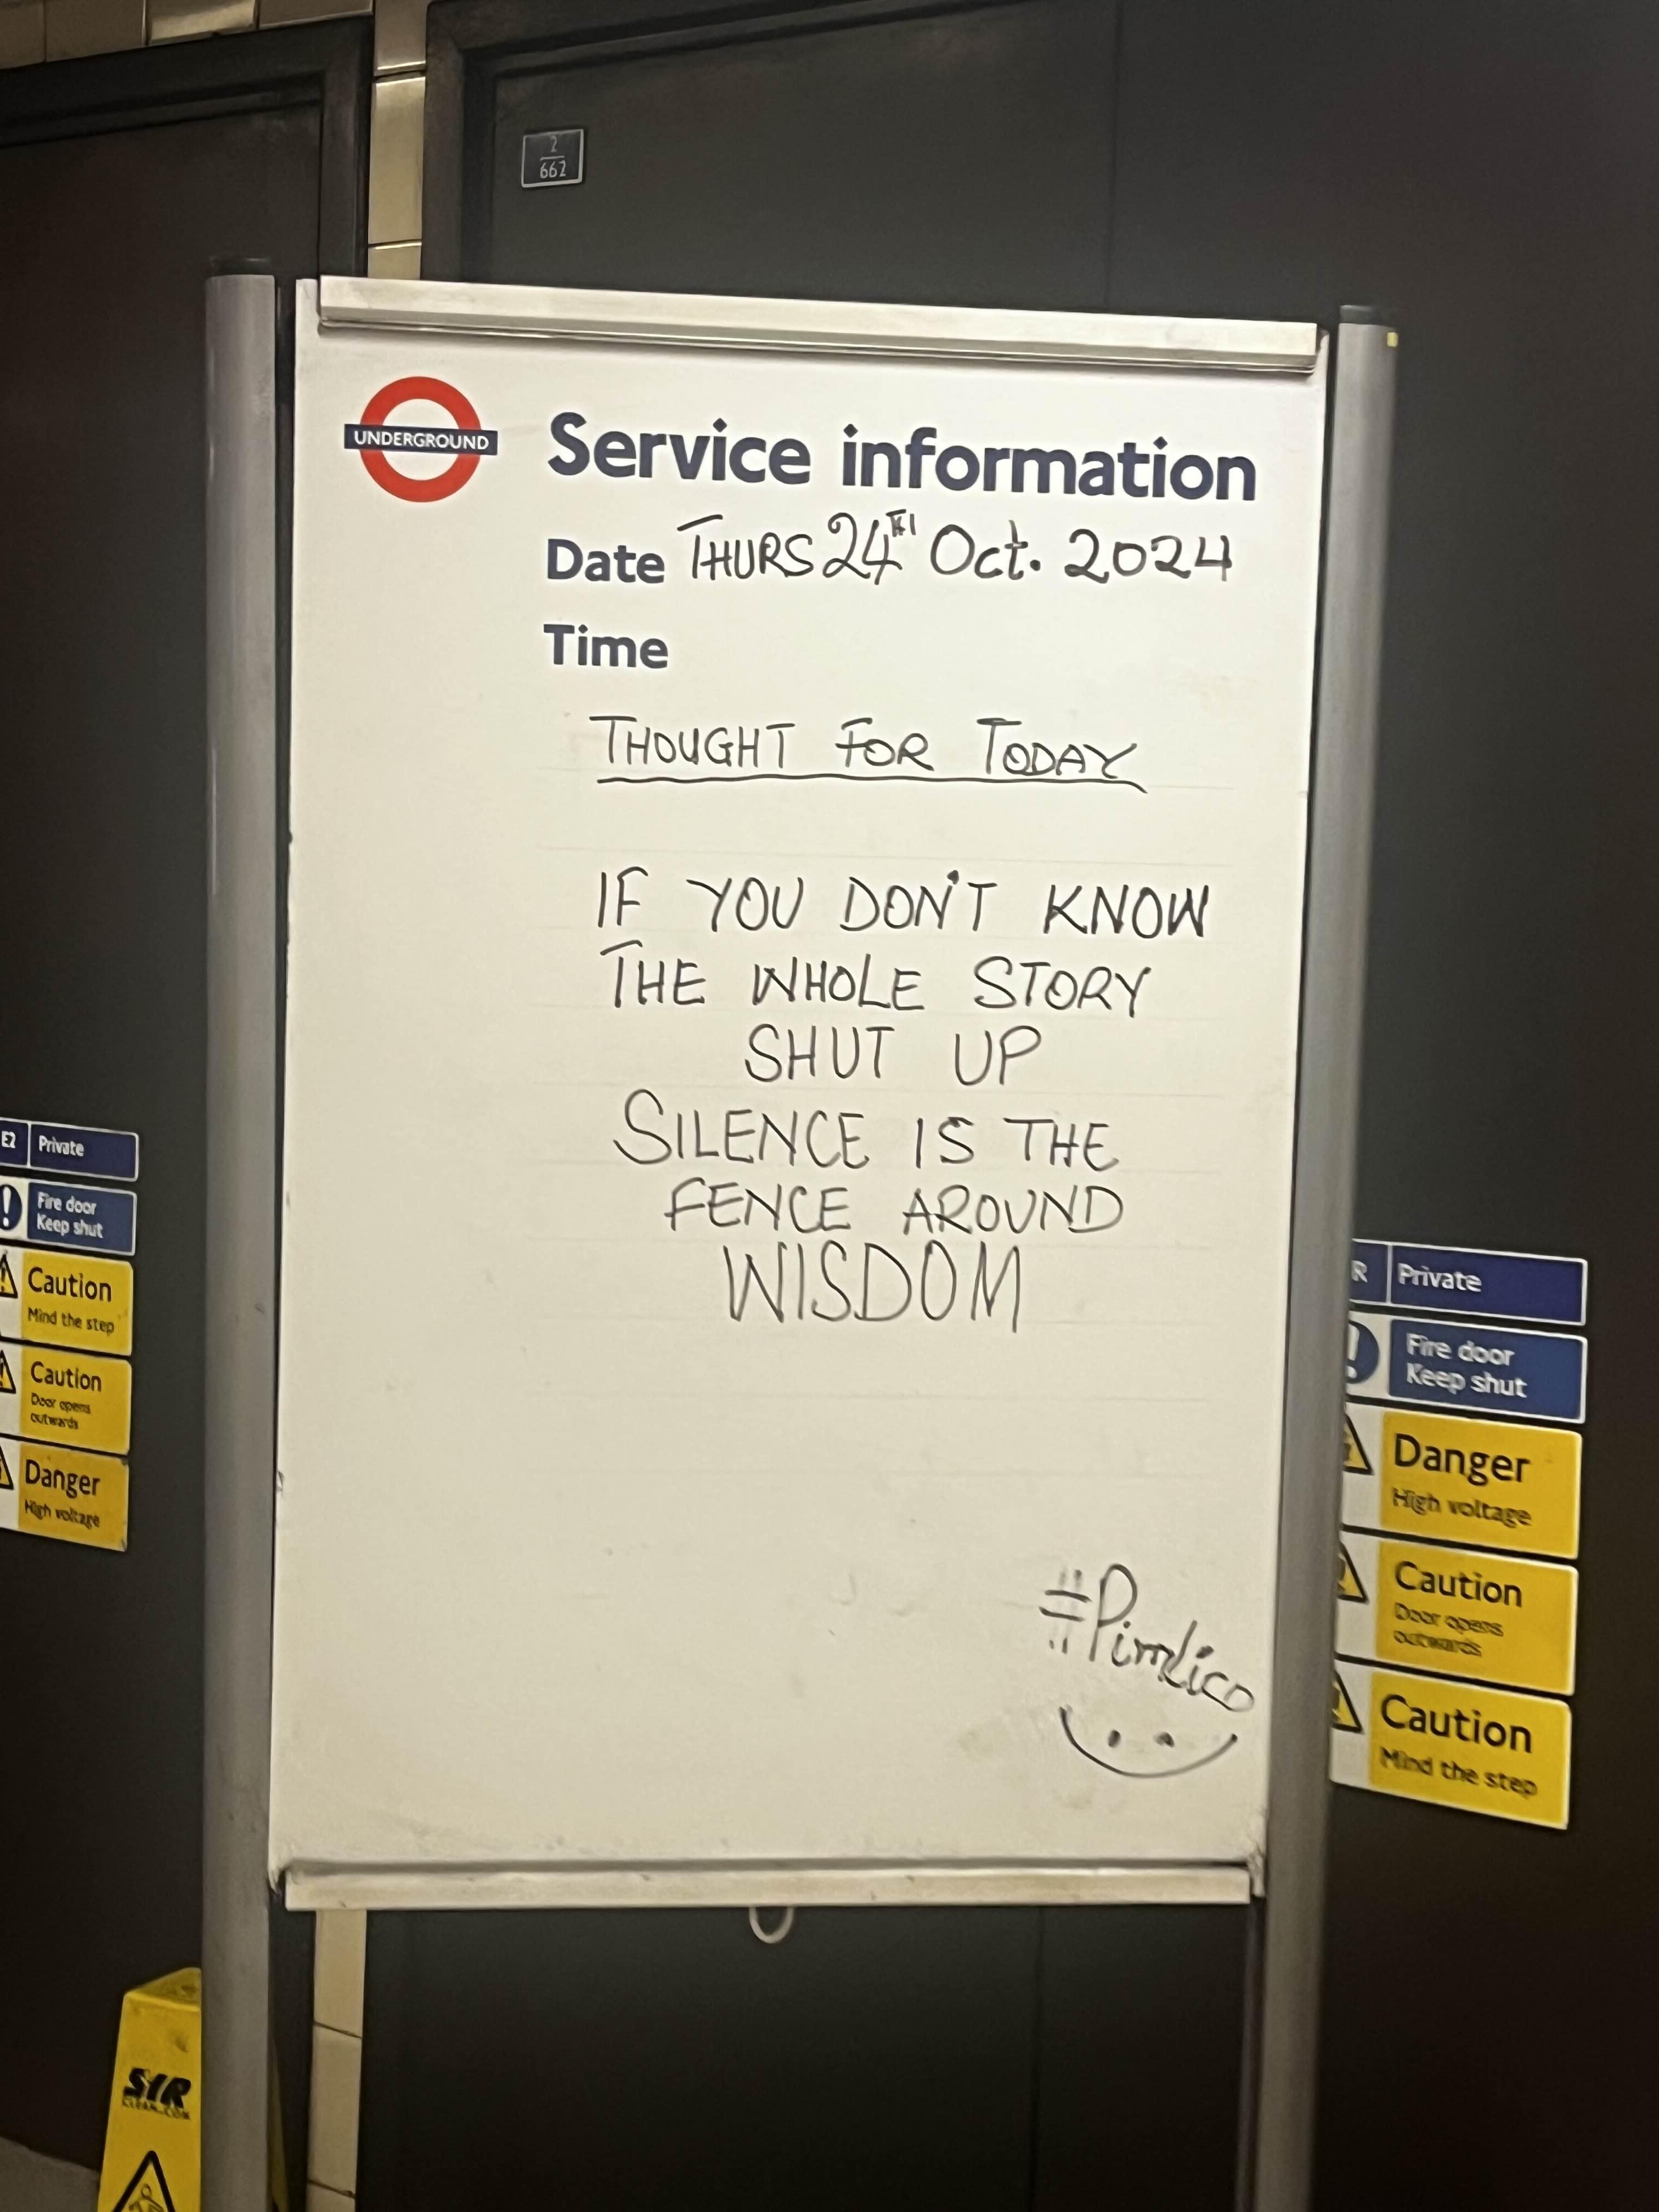 2
662
UNDERGROUND
Service information
Date THURS 24TH Oct. 2024
Time
THOUGHT FOR TODAY
IF YOU DON'T KNOW
THE WHOLE STORY
SHUT UP
SILENCE IS THE
FENCE AROUND
WISDOM
#Pimlico
E2 Private
Fire door
Keep shut
Caution
Mind the step
Caution
Door opens
outwards
Danger
High voltage
R Private
Fire door
Keep shut
Danger
High voltage
Caution
Door opens
outwards
Caution
Mind the step
SYR
CLEAN.COM